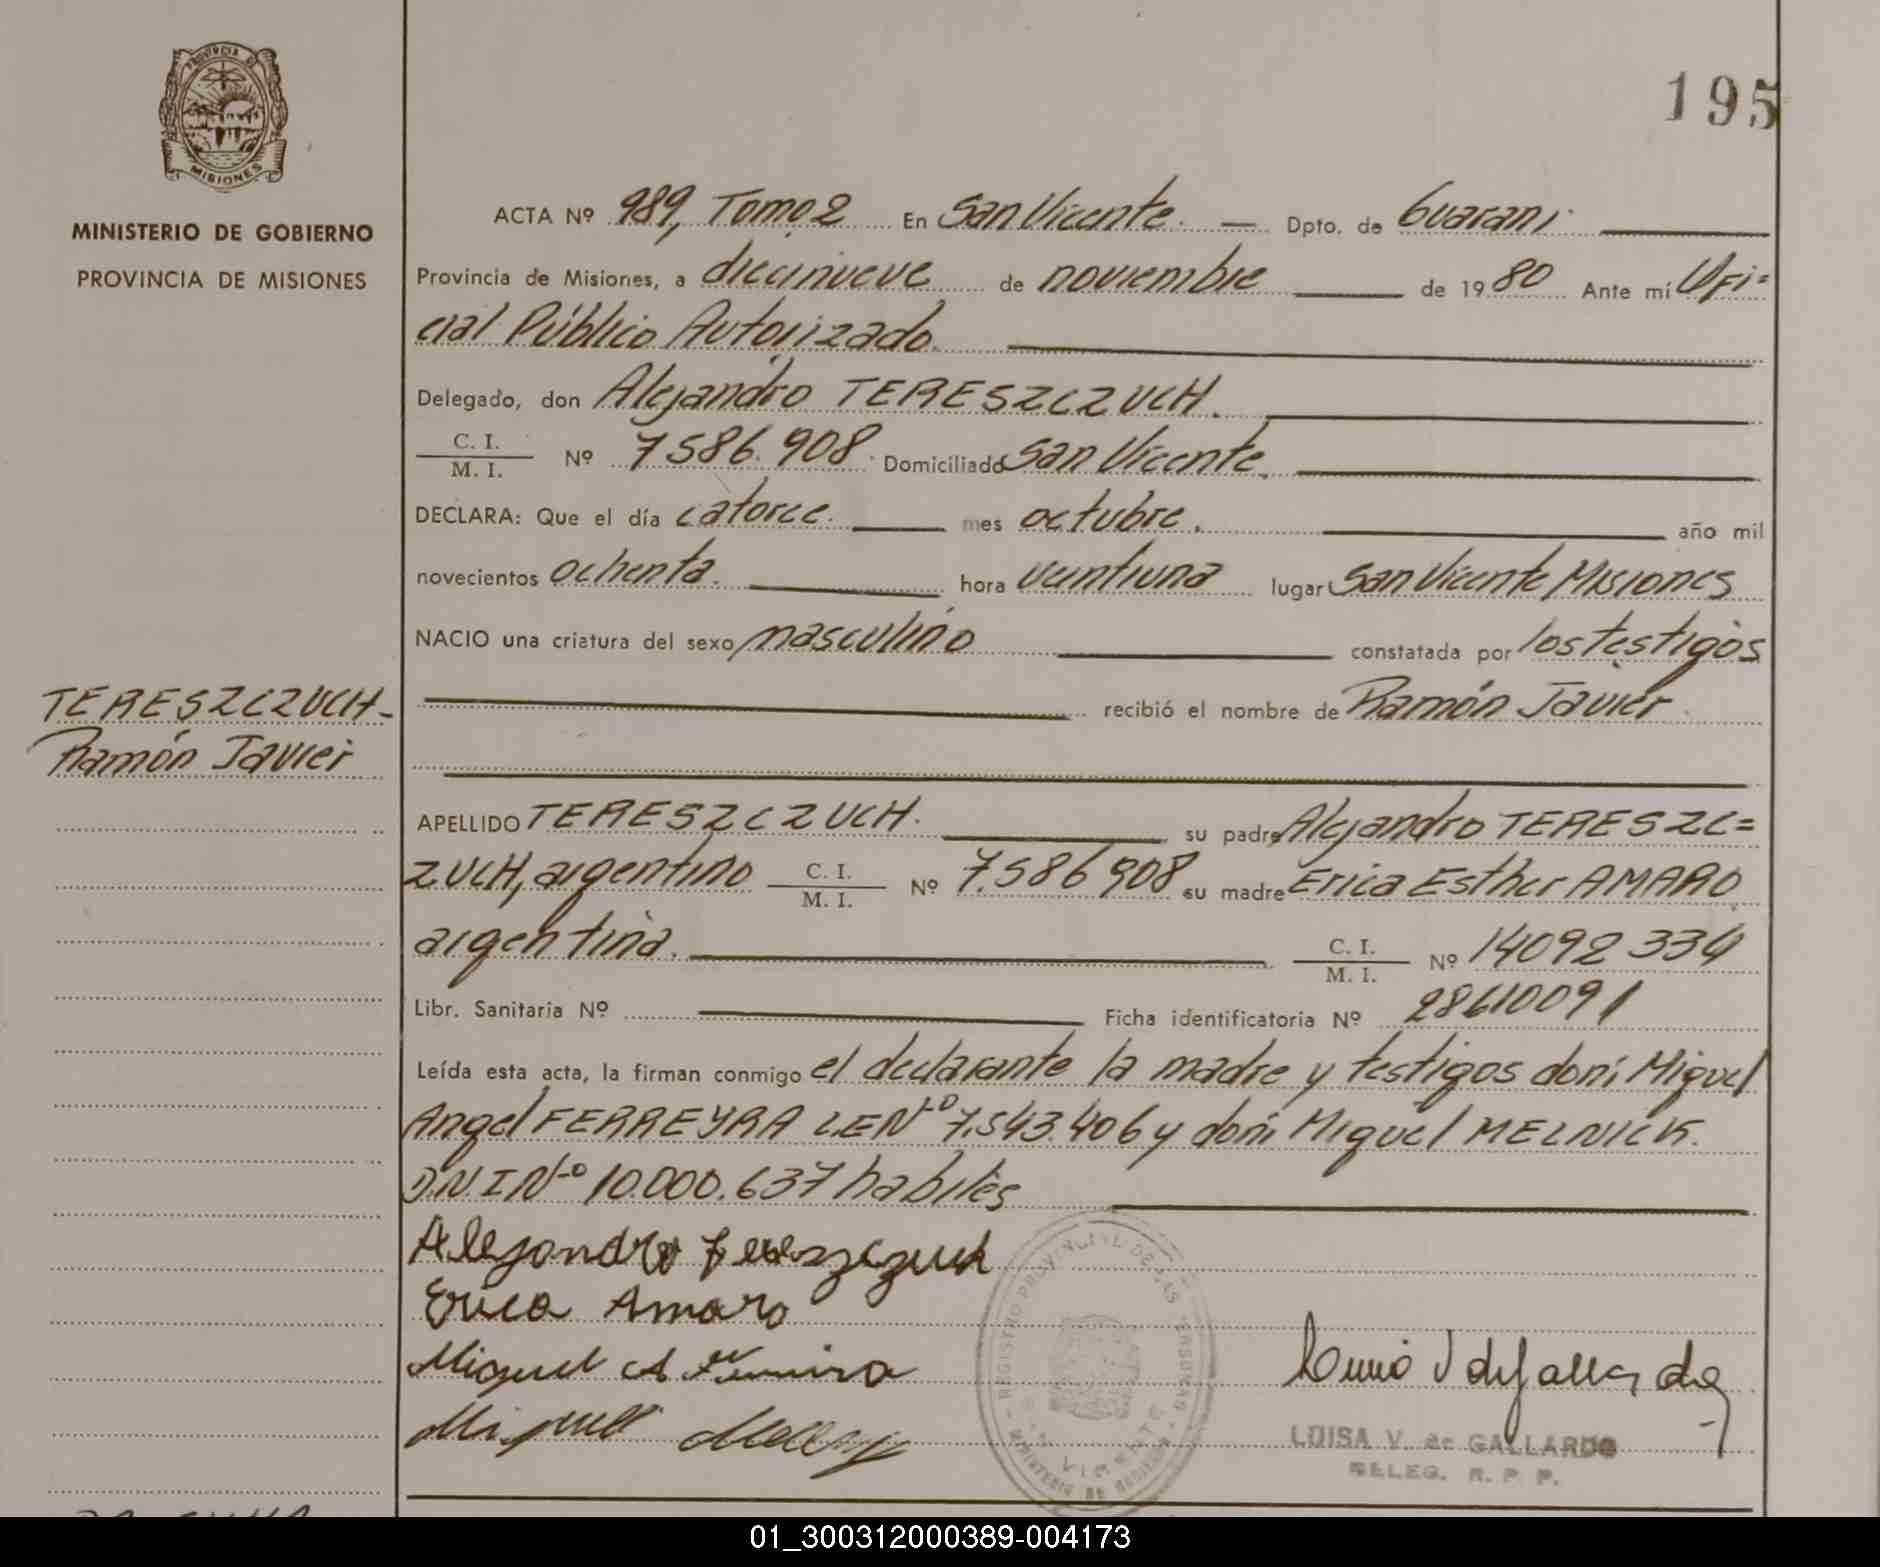 PROVINCIA DE
MISIONES
MINISTERIO DE GOBIERNO
PROVINCIA DE MISIONES
195
ACTA Nº 989, Tomo 2 En San Vicente. Dpto. de Guaraní
Provincia de Misiones, a diecinueve de noviembre de 1980 Ante mí Ofi=
cial Público Autorizado.
Delegado, don Alejandro TERESZCZUCH.
C. I.
M. I. Nº 7586.908 Domiciliado San Vicente.
DECLARA: Que el día catorce. mes octubre. año mil
novecientos ochenta. hora veintiuna lugar San Vicente Misiones
NACIO una criatura del sexo masculino constatada por los testigos
recibió el nombre de Ramón Javier
TERESZCZUCH-
Ramón Javier
APELLIDO TERESZCZUCH. su padre Alejandro TERESZC=
ZUCH, argentino C. I. M. I. Nº 7.586908 su madre Erica Esther AMARO
argentina. C. I. M. I. Nº 14092334
Libr. Sanitaria Nº Ficha identificatoria Nº 28610091
Leída esta acta, la firman conmigo el declarante la madre y testigos don: Miguel
Angel FERREYRA L.E Nº 7.543.406 y don: Miguel MELNICK.
D.N.I Nº 10.000.637 habiles
Alejandro Tereszczuch
Erica Amaro
Miguel A
Miguel
REGISTRO PROVINCIAL DE LAS PERSONAS
MINISTERIO DE GOBIERNO
LUISA V. de GALLARDO
DELEG. R. P. P.
01_300312000389-004173